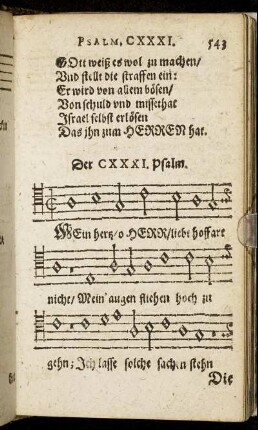 PSALM, CXXXI. 543
GOtt weiß es wol zu machen/
Vnd stellt die straffen ein:
Er wird von allem bösen/
Von schuld vnd missethat
Israel selbst erlösen
Das jhn zum HERREN hat.
Der CXXXI. Psalm.
MEin hertz/ o HERR/ liebt hoffart
nicht/ Mein augen stiehen hoch zu
gehn; Jch lasse solche sachen stehn
Die